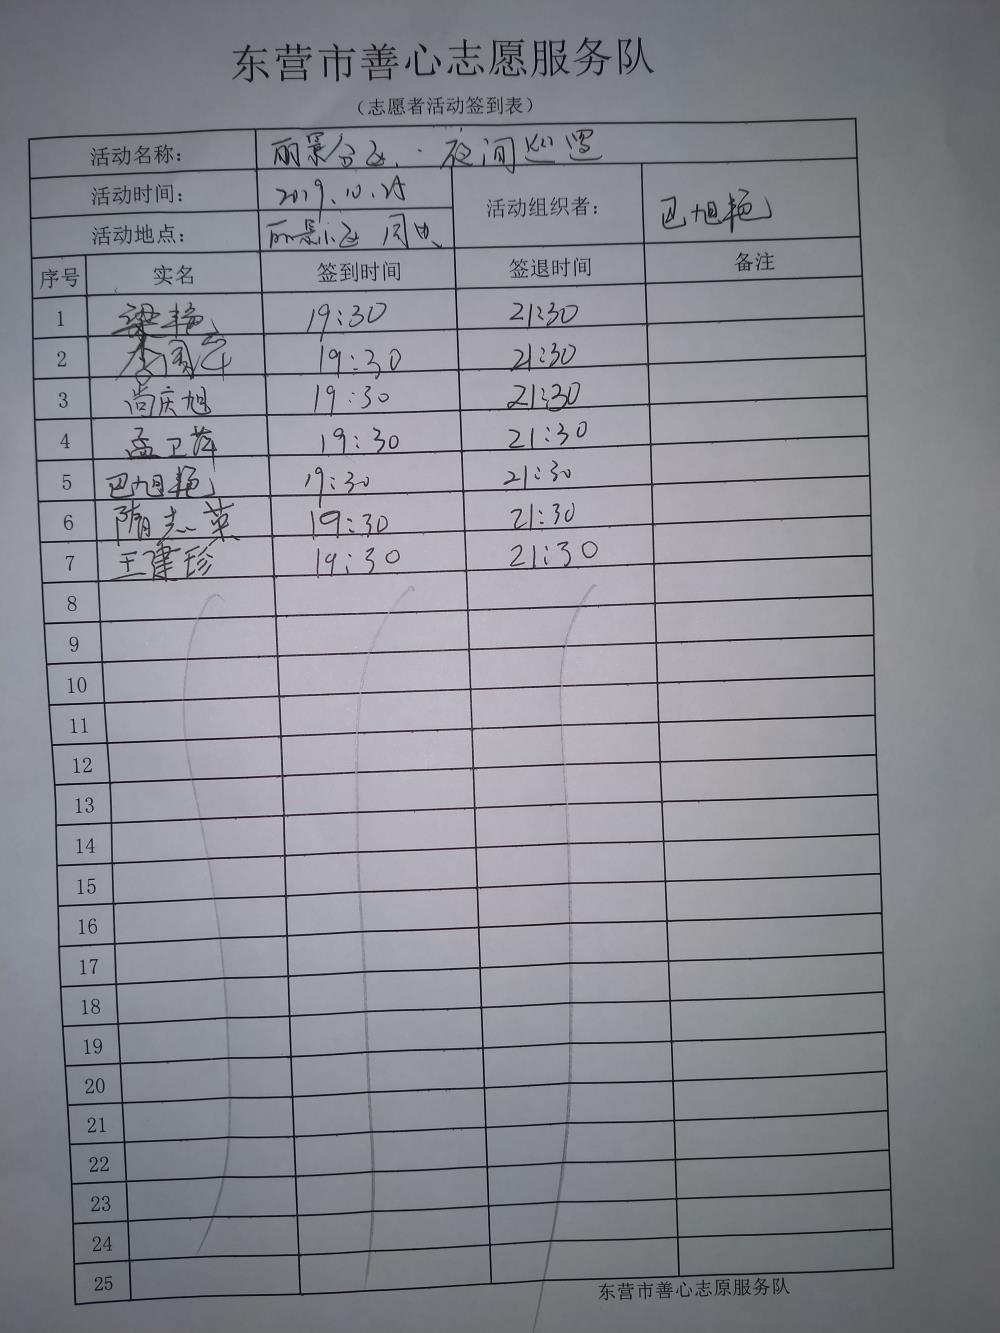 东营市善心志愿服务队
（志愿者活动签到表）
活动名称： 丽景分队·夜间巡逻
活动时间： 2019.10.25 活动组织者： 巴旭艳
活动地点： 丽景小区 周边
序号 实名 签到时间 签退时间 备注
1 梁艳 19:30 21:30
2 19:30 21:30
3 尚庆旭 19:30 21:30
4 孟卫萍 19:30 21:30
5 巴旭艳 19:30 21:30
6 隋志英 19:30 21:30
7 王建珍 19:30 21:30
8
9
10
11
12
13
14
15
16
17
18
19
20
21
22
23
24
25
东营市善心志原服务队